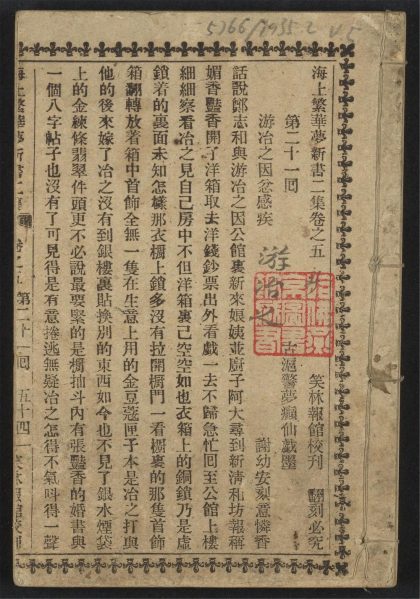 5766/1935.2 V.5
海上繁華夢新書二集卷之五
笑林報館校刋 翻刻必究
第二十一回
古滬警夢癡仙戲墨
游冶之因忿感疾
謝幼安刻意憐香
游冶之
話說鄭志和與游冶之因公館裏新來娘姨並廚子阿大尋到新清和坊報稱
媚香豔香開了洋箱取去洋錢鈔票出外看戲一去不歸急忙回至公館上樓
細細察看冶之見自己房中不但洋箱裏已空空如也衣箱上的銅鎖乃是虛
鎖着的裏面未知怎樣那衣櫥上鎖多沒有拉開櫥門一看櫥裏的那隻首飾
箱翻轉放着箱中首飾全無一隻在生意上用的金荳蔻匣子本是冶之打與
他的後來嫁了冶之沒有到銀樓裏貼換別的東西如今也不見了銀水煙袋
上的金練條翡翠件頭更不必說最要緊的是櫥抽斗內有張豔香的婚書與
一個八字帖子也沒有了可見得是有意捲逃無疑冶之怎得不氣呌得一聲
海上繁華夢新書二集 卷之五 第二十一回 五十四 笑林報館校